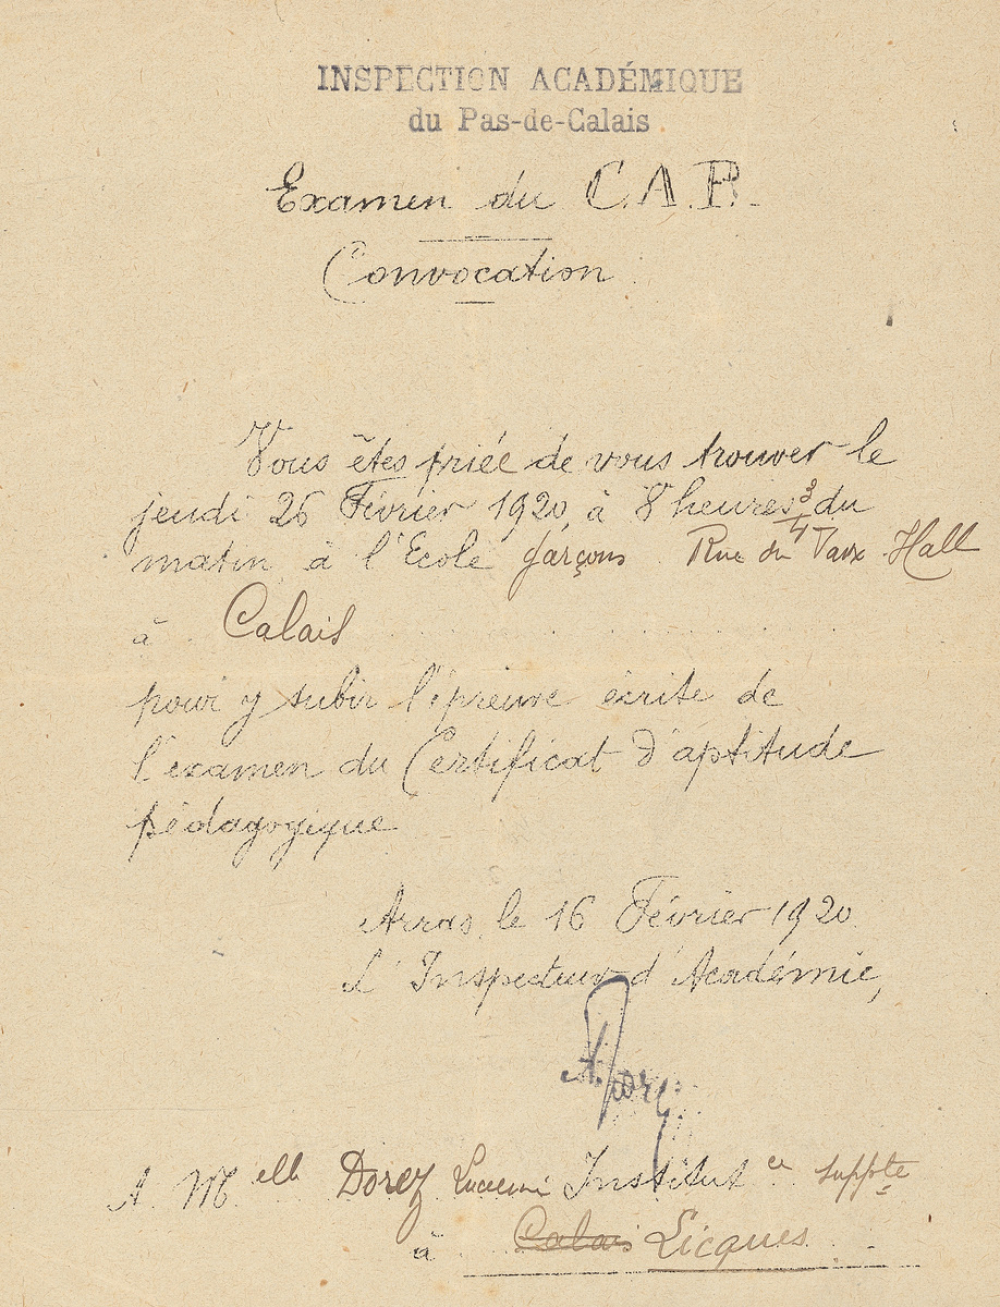 INSPECTION ACADÉMIQUE
du Pas-de-Calais
Examen du C.A.P.
Convocation
Vous êtes priée de vous trouver le
jeudi 26 Février 1920, à 8 heures 3/4 du
matin à l'Ecole garçons Rue du Vaux Hall
à Calais
pour y subir l'épreuve écrite de
l'examen du Certificat d'aptitude
pédagogique
Arras, le 16 Février 1920.
L'Inspecteur d'Académie,
A Melle Dorez Lucienne Institutce suppte
à Calais Licques